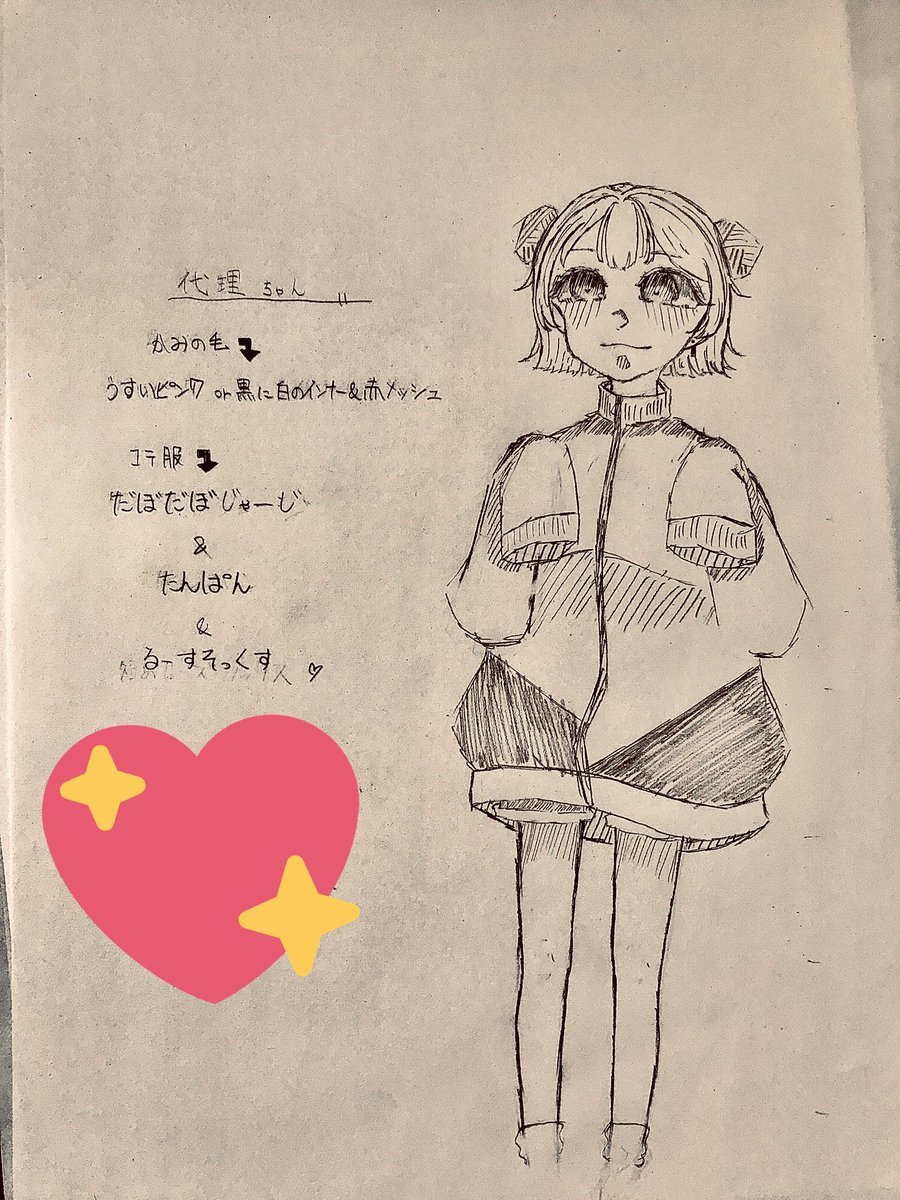 代理ちゃん
かみの毛
うすいピンク or 黒に白のインナー&赤メッシュ
コテ服
だぼだぼじゃーじ
&
たんぱん
&
るーすそっくす